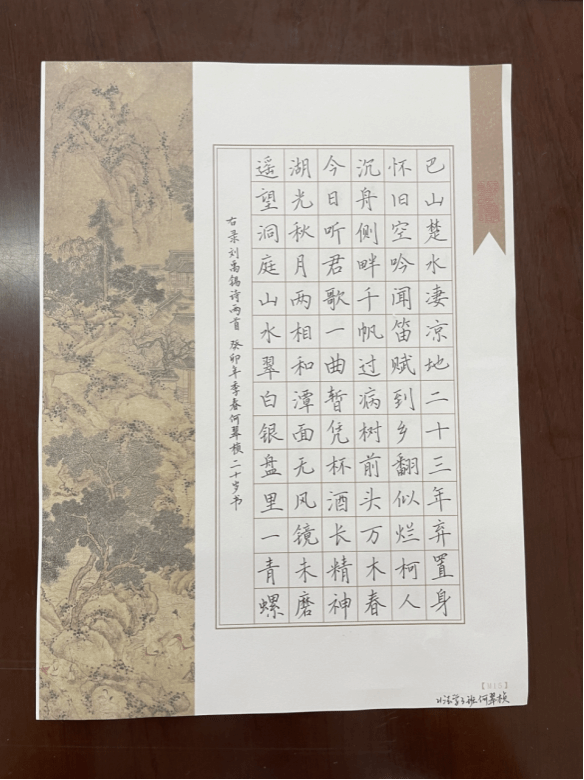 巴山楚水凄凉地二十三年弃置身
怀旧空吟闻笛赋到乡翻似烂柯人
沉舟侧畔千帆过病树前头万木春
今日听君歌一曲暂凭杯酒长精神
湖光秋月两相和潭面无风镜未磨
遥望洞庭山水翠白银盘里一青螺
右录刘禹锡诗两首 癸卯年季春何翠桢二十岁书
班何翠桢